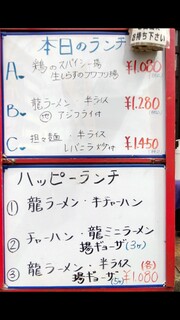 お待ち下さい
本日のランチ
A. 鶏のスパイシー揚
生しらすのフワフワ揚
¥1.080
B. 龍ラーメン・半ライス
アジフライ付
¥1.280
C. 担々麺・半ライス
レバニラ付
¥1.450
ハッピーランチ
① 龍ラーメン・半チャーハン
② チャーハン・龍ミニラーメン
揚ギョーザ(3ヶ)
③ 龍ラーメン・半ライス (各)
揚ギョーザ(5ヶ) ¥1.080